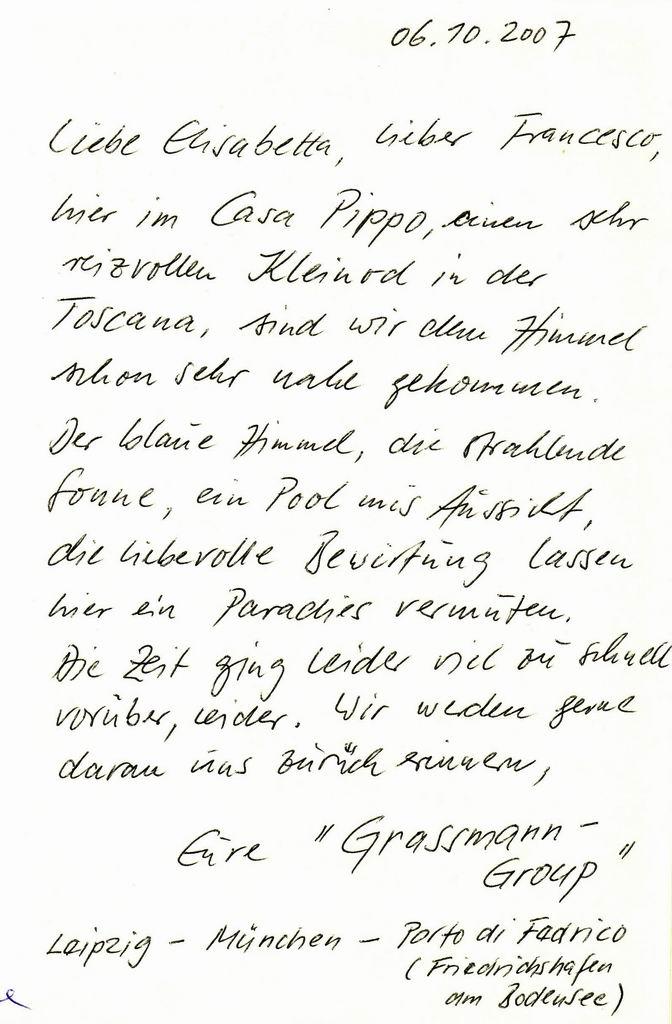 06.10.2007
Liebe Elisabetta, lieber Francesco,
hier im Casa Pippo, einen sehr
reizvollen Kleinod in der
Toscana, sind wir dem Himmel
schon sehr nahe gekommen.
Der blaue Himmel, die strahlende
Sonne, ein Pool mit Aussicht,
die liebevolle Bewirtung lassen
hier ein Paradies vermuten.
Die Zeit ging leider viel zu schnell
vorüber, leider. Wir werden gerne
daran uns zurück erinnern,
Eure "Grassmann-
Group"
Leipzig - München - Porto di Fedrico
(Friedrichshafen
am Bodensee)